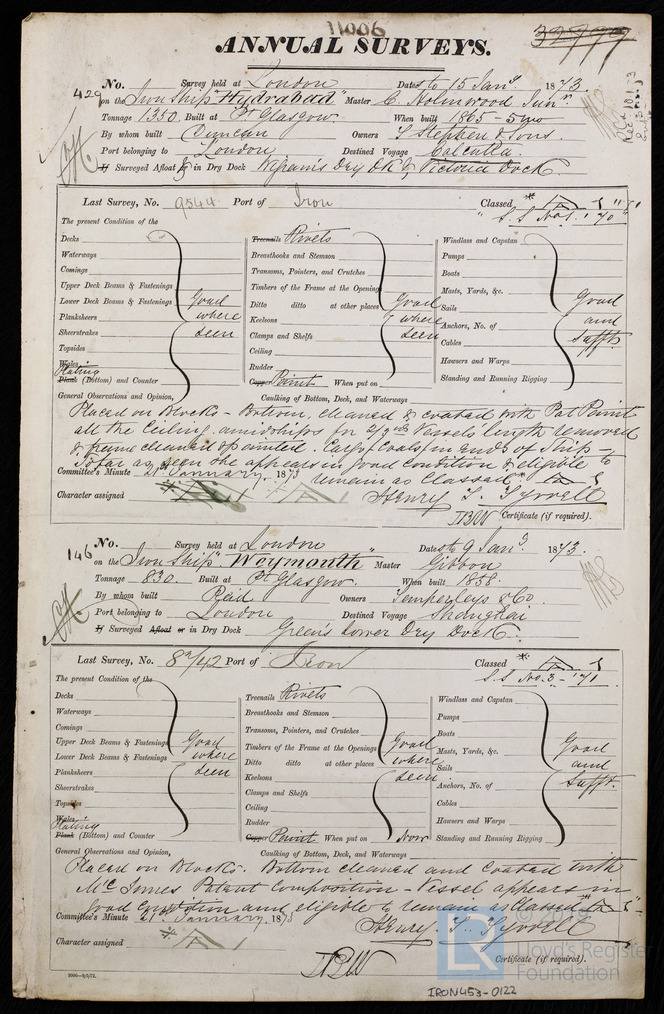 11006
ANNUAL SURVEYS.
32799
No. 429 Survey held at London Date to 15 Jany. 1873.
on the Iron Ship "Hydrabad" Master C. Holmwood Junr
Tonnage 1350. Built at Pt Glasgow. When built 1865 - 5 mo
By whom built Duncan Owners T. Stephen & Sons.
Port belonging to London Destined Voyage Calcutta.
If Surveyed Afloat & in Dry Dock Wigram's Dry Dk & Victoria Dock
Last Survey, No. 9544 Port of Iron Classed
"S.S No. 1. '70"
The present Condition of the
Decks
Waterways
Comings
Upper Deck Beams & Fastenings
Lower Deck Beams & Fastenings
Planksheers
Sheerstrakes
Topsides
Wales
Plating
Plank (Bottom) and Counter
Good where seen
Treenails Rivets
Breasthooks and Stemson
Transoms, Pointers, and Crutches
Timbers of the Frame at the Openings
Ditto ditto at other places
Keelsons
Clamps and Shelfs
Ceiling
Rudder
Copper Paint When put on
Good where seen
Windlass and Capstan
Pumps
Boats
Masts, Yards, &c.
Sails
Anchors, No. of
Cables
Hawsers and Warps
Standing and Running Rigging
Good and Sufft.
General Observations and Opinion, Caulking of Bottom, Deck, and Waterways
Placed on Blocks - Bottom, cleaned & coated with Pat Paint
all the Ceiling amidships for 2/3rds Vessels length removed
& frame cleaned & painted. Cargo (Coals) in ends of Ship -
So far as seen she appears in good condition & eligible to
remain as Classed
Committee's Minute 21st January 1873
Character assigned
Henry T. Tyrrell
Certificate (if required).
No. 146 Survey held at London Date to 9 Jany. 1873.
on the Iron Ship "Weymouth" Master Gibbon
Tonnage 830. Built at Pt Glasgow. When built 1858.
By whom built Reid Owners Temperleys & Co.
Port belonging to London Destined Voyage Shanghai
If Surveyed Afloat or in Dry Dock Green's Lower Dry Dock.
Last Survey, No. Port of Iron Classed
S.S No. 3 - '71
The present Condition of the
Decks
Waterways
Comings
Upper Deck Beams & Fastenings
Lower Deck Beams & Fastenings
Planksheers
Sheerstrakes
Topsides
Wales
Plating
Plank (Bottom) and Counter
Good where seen
Treenails Rivets
Breasthooks and Stemson
Transoms, Pointers, and Crutches
Timbers of the Frame at the Openings
Ditto ditto at other places
Keelsons
Clamps and Shelfs
Ceiling
Rudder
Copper Paint When put on Now
Good where seen.
Windlass and Capstan
Pumps
Boats
Masts, Yards, &c.
Sails
Anchors, No. of
Cables
Hawsers and Warps
Standing and Running Rigging
Good and Sufft.
General Observations and Opinion, Caulking of Bottom, Deck, and Waterways
Placed on Blocks. Bottom cleaned and coated with
McInnes Patent Composition - Vessel appears in
good condition and eligible to remain as Classed
Committee's Minute 21st January 1873
Henry T. Tyrrell
Character assigned
Certificate (if required).
2000-9/5/72.
© 2019
LR
Lloyd's Register
Foundation
IRON453-0122